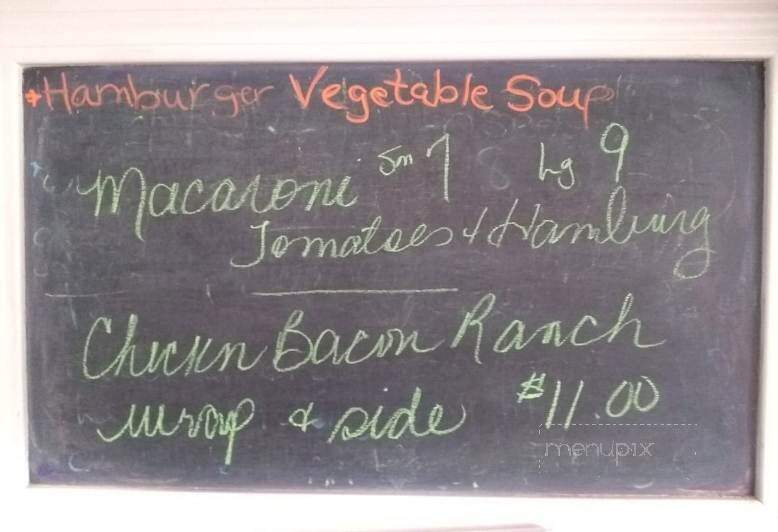 +Hamburger Vegetable Soup
Macaroni Sm 7 Lg 9
Tomatoes & Hamburg
Chickn Bacon Ranch
wrap & side $11.00
menupix